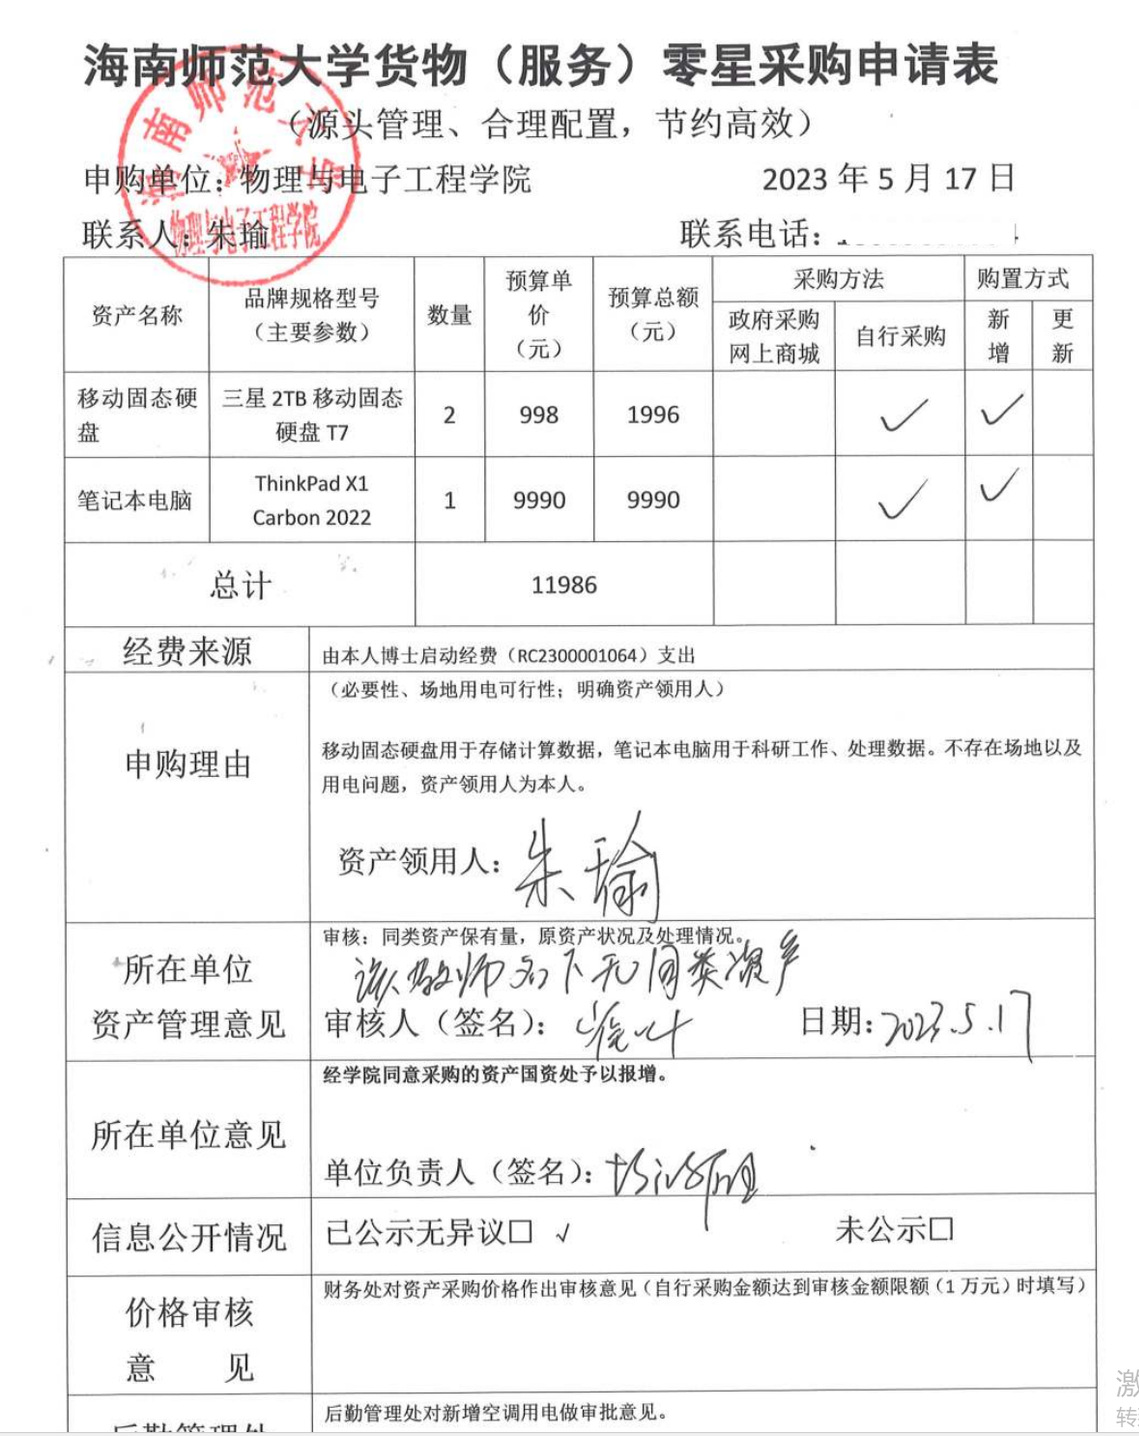 海南师范大学货物（服务）零星采购申请表
（源头管理、合理配置，节约高效）
申购单位：物理与电子工程学院 2023年5月17日
海南师范大学
物理与电子工程学院
联系人：朱瑜 联系电话：
资产名称 品牌规格型号（主要参数） 数量 预算单价（元） 预算总额（元） 采购方法 购置方式
政府采购网上商城 自行采购 新增 更新
移动固态硬盘 三星 2TB 移动固态硬盘 T7 2 998 1996 ✓ ✓
笔记本电脑 ThinkPad X1 Carbon 2022 1 9990 9990 ✓ ✓
总计 11986
经费来源 由本人博士启动经费（RC2300001064）支出
申购理由
（必要性、场地用电可行性；明确资产领用人）
移动固态硬盘用于存储计算数据，笔记本电脑用于科研工作、处理数据。不存在场地以及
用电问题，资产领用人为本人。
资产领用人：朱瑜
所在单位
资产管理意见
审核：同类资产保有量，原资产状况及处理情况。
该教师名下无同类资产
审核人（签名）： 日期：2023.5.17
所在单位意见
经学院同意采购的资产国资处予以报增。
单位负责人（签名）：
信息公开情况 已公示无异议□ √ 未公示□
价格审核
意 见
财务处对资产采购价格作出审核意见（自行采购金额达到审核金额限额（1万元）时填写）
后勤管理处
后勤管理处对新增空调用电做审批意见。
激
转